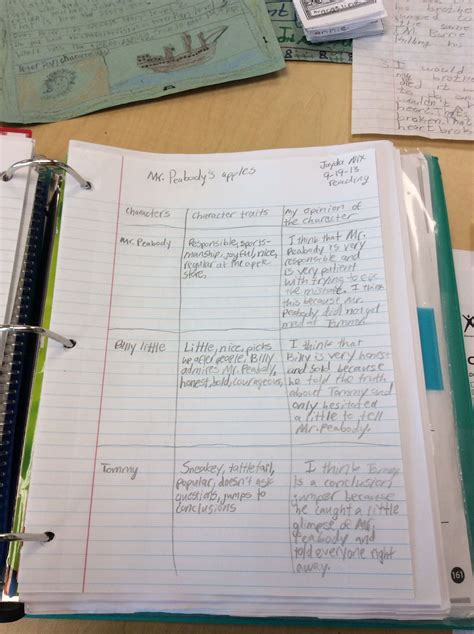 annie
Mr. Peabody's apples
Jayder Nix
9-19-13
reading
characters
Character traits
my opinion of
the character
Mr. Peabody
Responsible, sports-
manship, joyful, nice,
regular at the apple
store.
I think that Mr.
Peabody is very
responsible and
is very patient
with trying to
the mistake. I think
this because Mr.
Peabody did not get
mad at Tommy.
Billy little
Little, nice, picks
up after people, Billy
admires Mr. Peabody,
honest, bold, courageous,
I think that
Billy is very honest
and bold because
he told the truth
about Tommy and
only hesitated
a little to tell
Mr. Peabody.
Tommy
Sneakey, tattletail,
popular, doesn't ask
questions, jumps to
conclusions
I think Tommy
is a conclusion
jumper because
he caught a little
glimpse of Mr.
Peabody and
told everyone right
away.
161